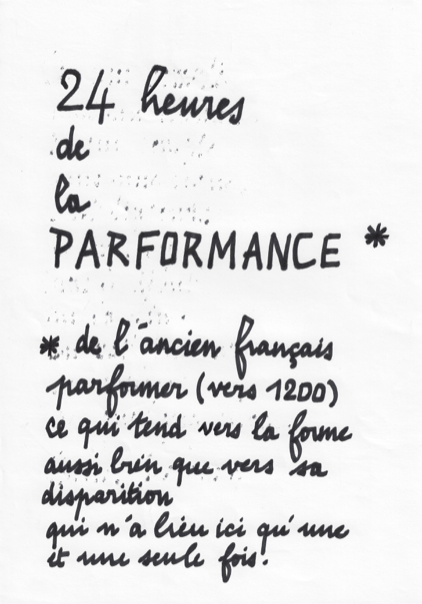 24 heures
de
la
PARFORMANCE *
* de l'ancien français
parformer (vers 1200)
ce qui tend vers la forme
aussi bien que vers sa
disparition
qui n'a lieu ici qu'une
et une seule fois.